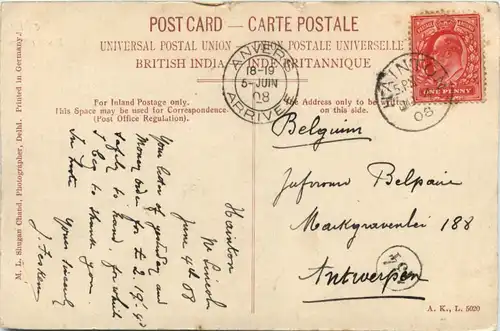 POST CARD — CARTE POSTALE
UNIVERSAL POSTAL UNION UNION POSTALE UNIVERSELLE
BRITISH INDIA INDE BRITANNIQUE
ANVERS
18-19
5-JUIN
08
ARRIVÉE
08
ONE PENNY
For Inland Postage only.
This Space may be used for Correspondence.
(Post Office Regulation).
Address only to be
on this side.
Hainton
Nr Lincoln
June 4th 08
Your letter of yesterday and
Money order for £ 2.19.
safely to hand, for which
I beg to thank you.
In haste
Yours sincerely
Belgium
Jufvrouw Belpaire
Markgravenlei 188
Antwerpen
M. L. Shugan Chand, Photographer, Delhi. Printed in Germany.
A. K., L. 5020